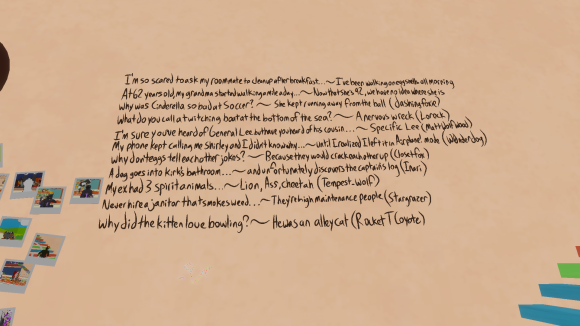 I'm so scared to ask my roommate to cleanup after breakfast...~ I've been walking on eggshells all morning
At 62 years old, my grandma started walking a mile a day...~ Now that she's 92, we have no idea where she is
Why was Cinderella so bad at Soccer?~ She kept running away from the ball (dashingfoxe)
What do you call a twitching boat at the bottom of the sea?~ A nervous wreck (Lorock)
I'm sure you've heard of General Lee but have you heard of his cousin...~ Specific Lee (Mattsdafwood)
My phone kept calling me Shirley and I didn't know why...~ until I realized I left it in Airplane! mode (Webberdog)
Why don't eggs tell each other jokes?~ Because they would crack each other up (Closetfox)
A dog goes into Kirk's bathroom...~ and unfortunately discovers the captain's log (Inari)
My ex had 3 spirit animals...~ Lion, Ass, cheetah (Tempest-wolf)
Never hire a janitor that smokes weed...~ They're high maintenance people (Stargrazer)
Why did the kitten love bowling?~ He was an alley cat (Rocket T Coyote)